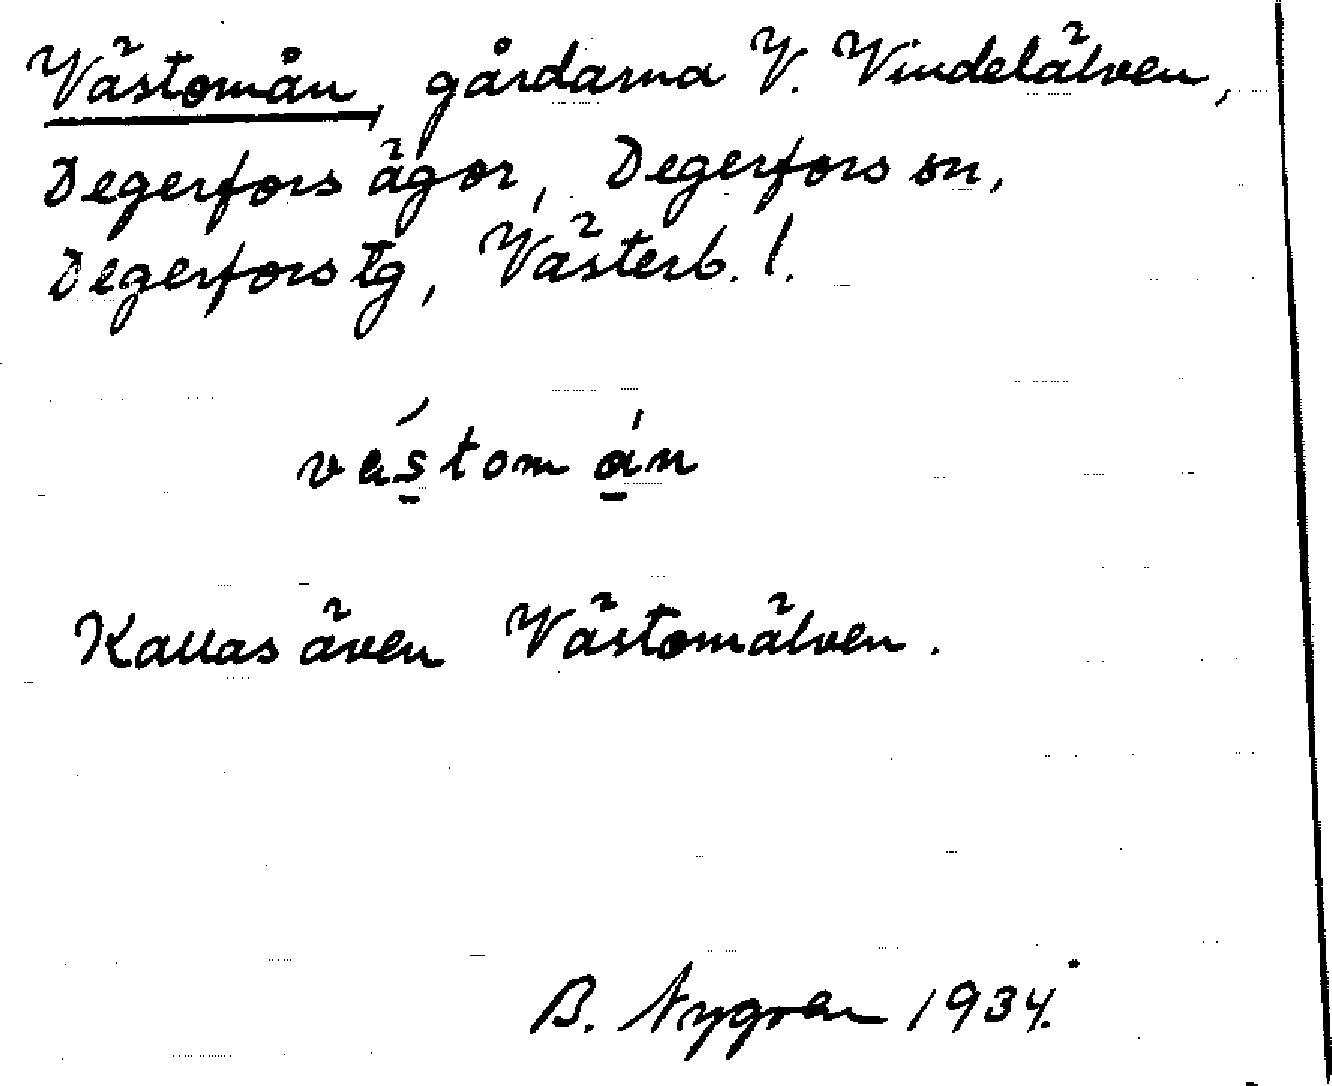 Västomån, gårdarna V. Vindelälven,
Degerfors ägor, Degerfors sn,
Degerfors tg, Västerb. l.
västomån
Kallas även Västomälven.
B. Nygren 1934.